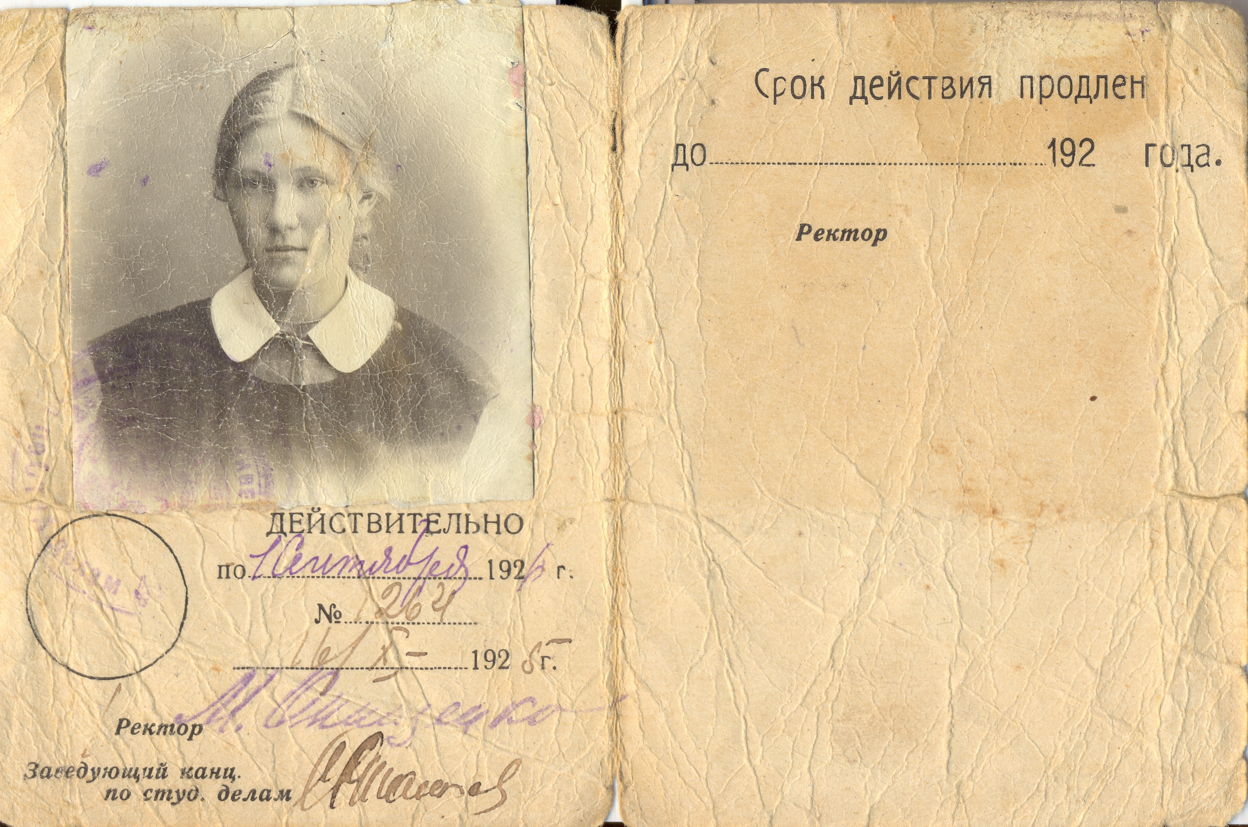 ДЕЙСТВИТЕЛЬНО
по 1 Сентября 1926 г.
№ 264
16/X– 1925 г.
Ректор
Заведующий канц.
по студ. делам
Срок действия продлен
до 192 года.
Ректор